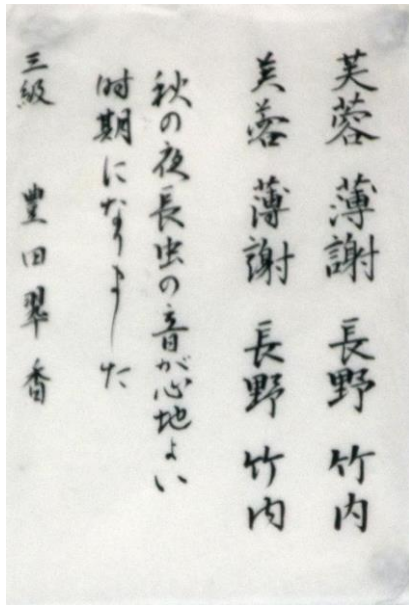 芙蓉 薄謝 長野 竹内
芙蓉 薄謝 長野 竹内
秋の夜長虫の音が心地よい
時期になりました
三級 豊田翠香